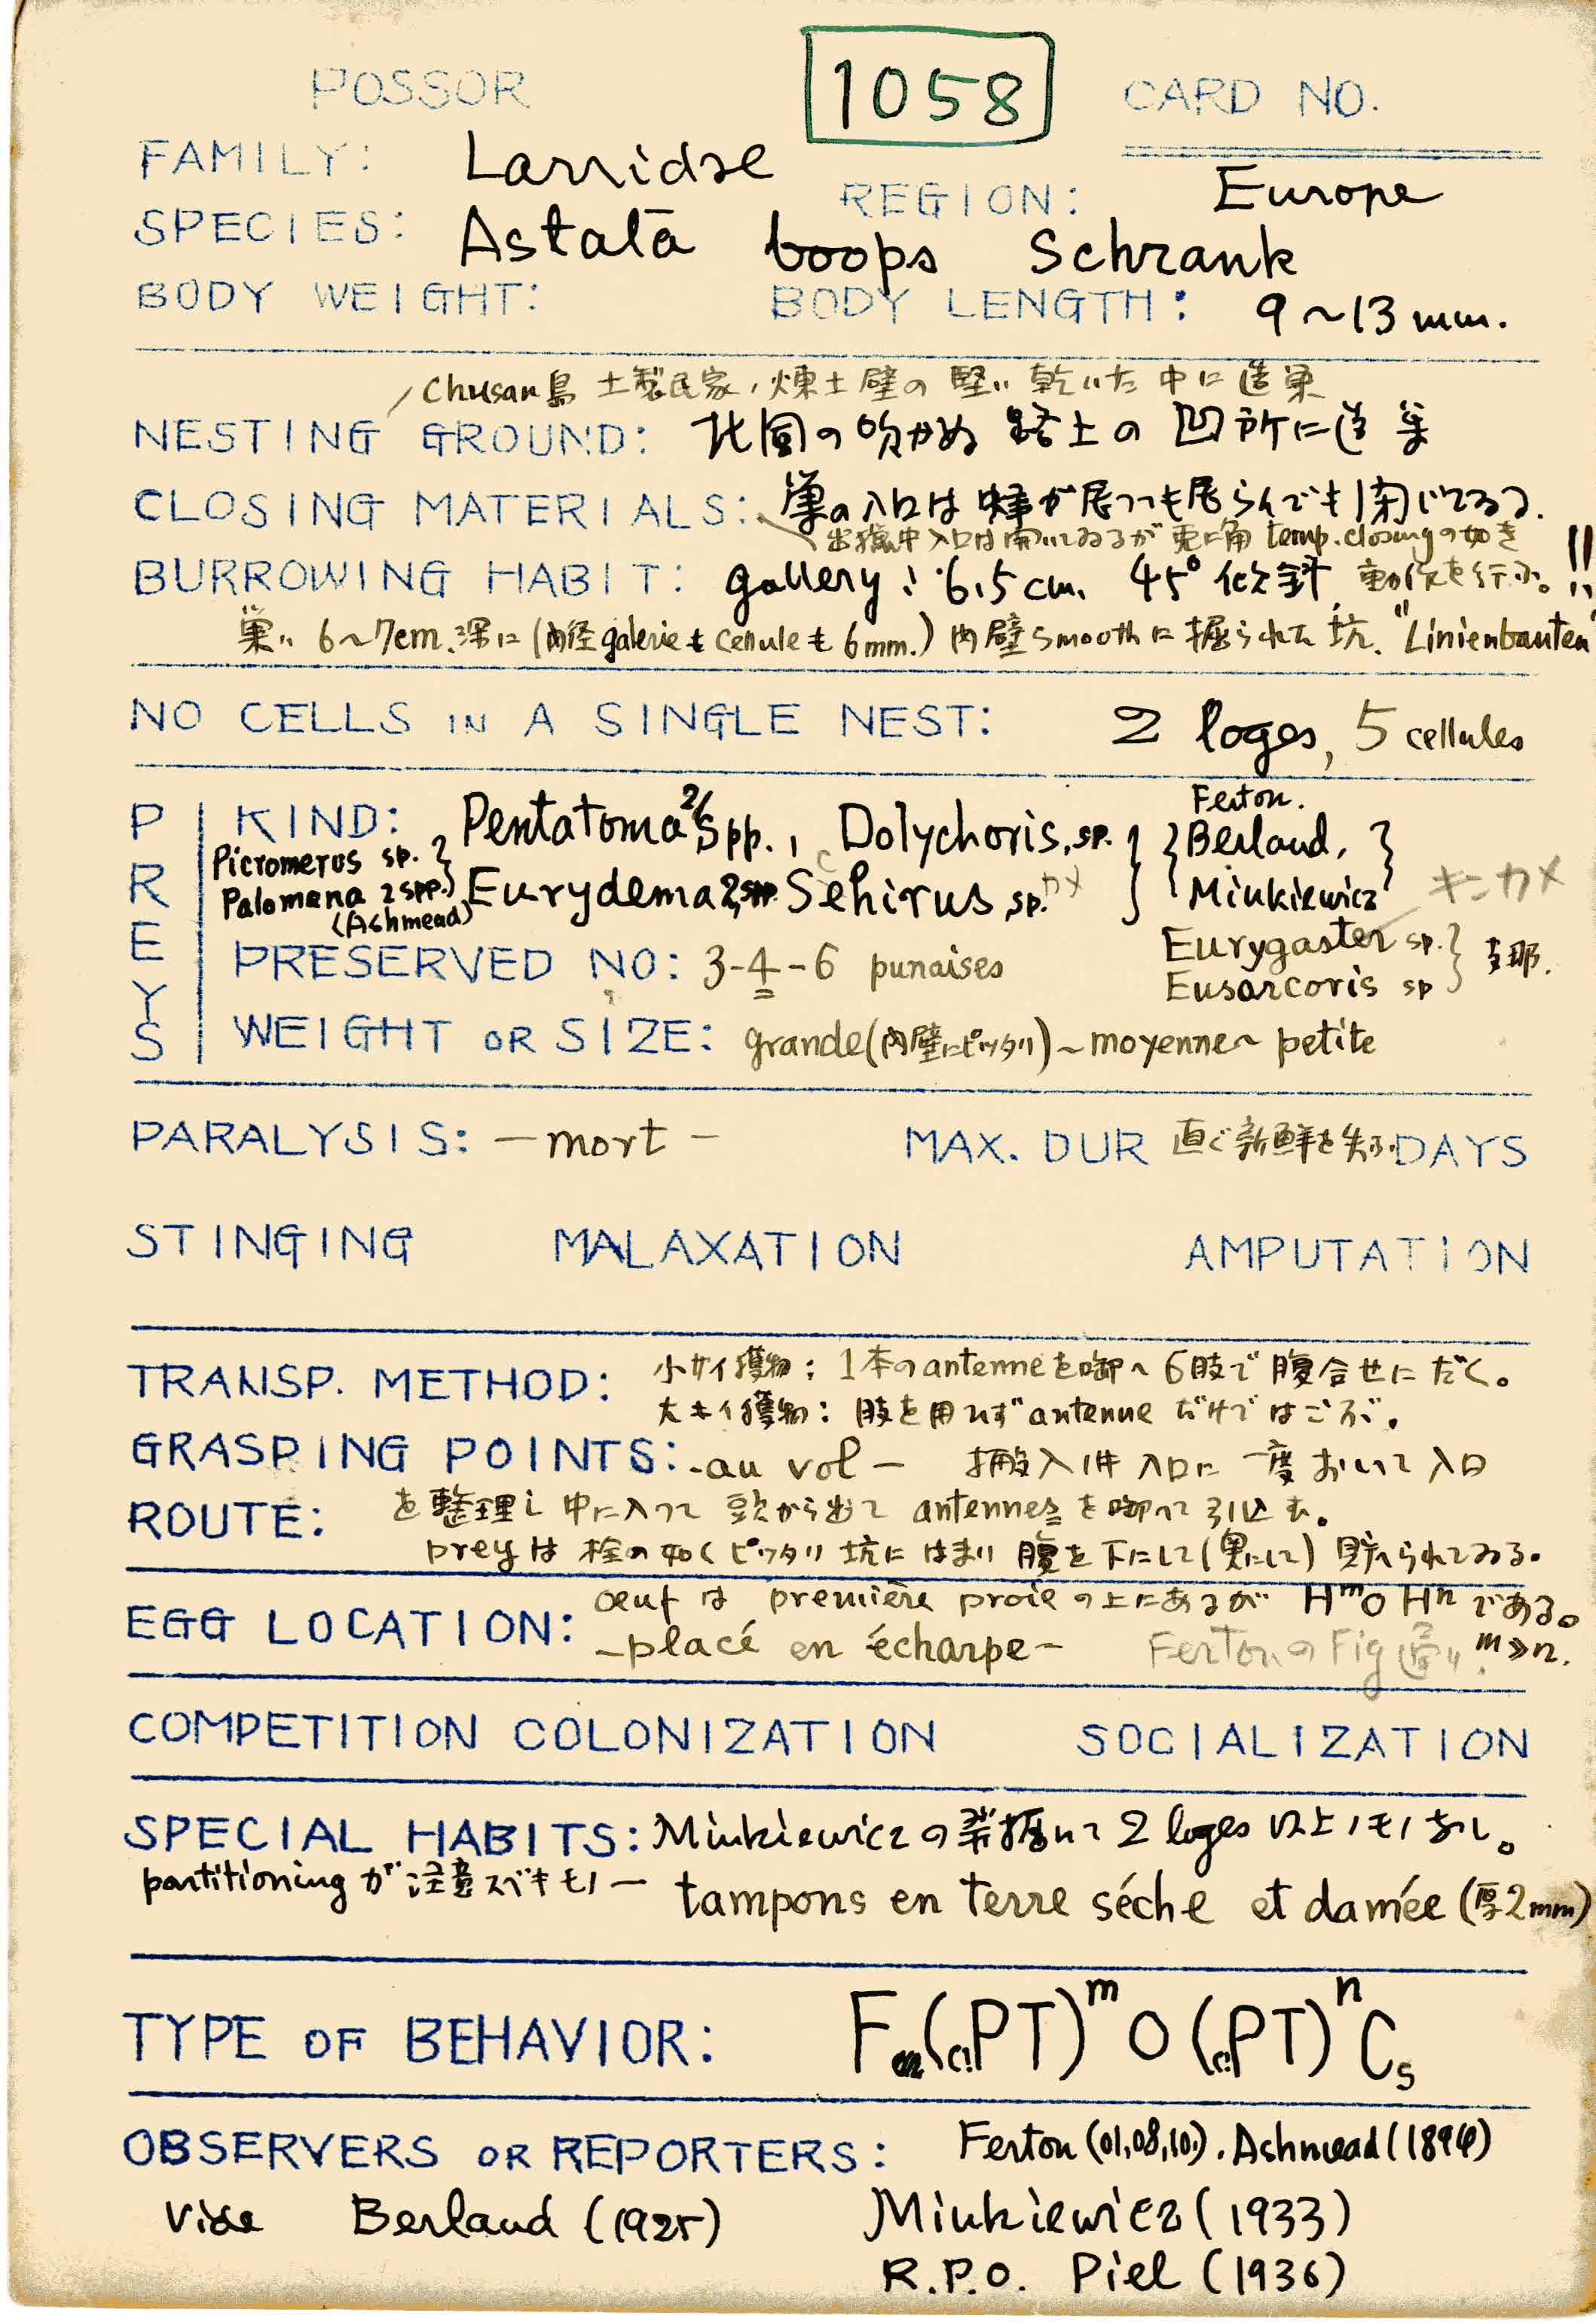 POSSOR 1058 CARD NO.
FAMILY: Larridae
REGION: Europe
SPECIES: Astata boops Schrank
BODY WEIGHT: BODY LENGTH: 9~13 mm.
Chusan島 土製民家ノ煉土壁の堅い乾いた中に造巣
NESTING GROUND: 北風の吹かぬ路上の凹所に造巣
CLOSING MATERIALS: 巣の入口は蜂が居っても居らんでも閉じてゐる.
出猟中入口は開いてゐるが兎に角 temp. closingの如き
BURROWING HABIT: gallery: 6.5 cm. 45° 傾斜 動作を行ふ。!!
巣ハ 6~7cm.深に(内径galerieもcelluleも6mm.) 内壁smoothに掘られた坑. "Linienbauten"
NO CELLS IN A SINGLE NEST: 2 loges, 5 cellules
PREYS
KIND: Pentatoma 2 spp., Dolychoris, sp. Ferton. Berland, Minkiewicz
Picromerus sp.
Palomena 2 spp. (Ashmead)
Eurydema 2 spp. Sehirus sp. キンカメ
Eurygaster sp.
Eusarcoris sp 支那.
PRESERVED NO: 3-4-6 punaises
WEIGHT OR SIZE: grande(内壁にピッタリ)~moyenne~petite
PARALYSIS: —mort— MAX. DUR 直ぐ新鮮を失ふ DAYS
STINGING MALAXATION AMPUTATION
TRANSP. METHOD: 小サイ獲物: 1本のantenneを啣へ6肢で腹合せにだく。
大キイ獲物: 肢を用ひず antenne だけではこぶ.
GRASPING POINTS: -au vol— 搬入件 入口に一度おいて入口
ROUTE: を整理し中に入って頭から出て antennesを啣へて引込む.
preyは栓の如くピッタリ坑にはまり腹を下にして(奥にして)貯へられてゐる.
EGG LOCATION: œuf は première proie の上にあるが HᵐOHⁿ である。
—placé en écharpe— FertonのFig m≫n.
COMPETITION COLONIZATION SOCIALIZATION
SPECIAL HABITS: Minkiewiczの発掘にて 2 loges 以上ノモノなし。
partitioning ガ注意スベキモノ— tampons en terre séche et damée (厚2mm)
TYPE OF BEHAVIOR: F (cPT)ᵐ O (cPT)ⁿ Cₛ
OBSERVERS OR REPORTERS: Ferton (01,08,10). Ashmead
vide Berland (1925) Minkiewicz (1933)
R.P.O. Piel (1936)